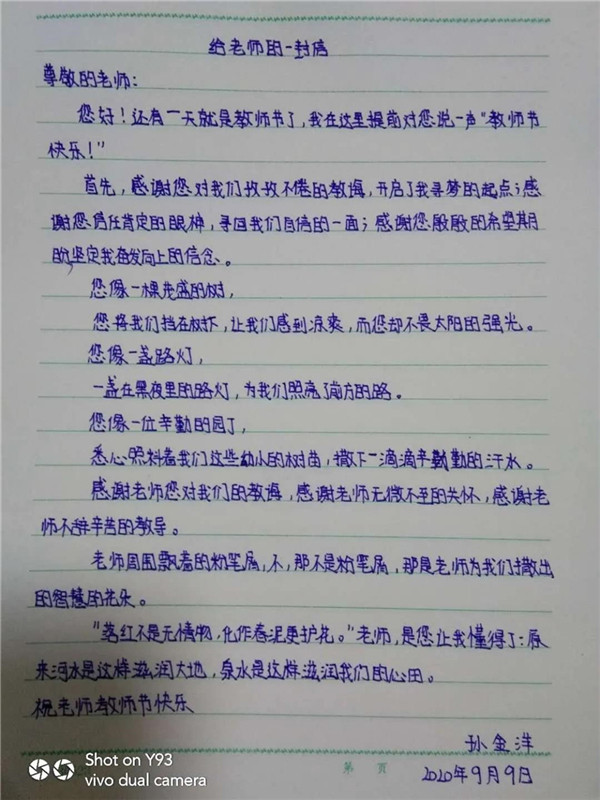 给老师的一封信
尊敬的老师:
您好!还有一天就是教师节了,我在这里提前对您说一声"教师节
快乐!"
首先,感谢您对我们孜孜不倦的教诲,开启了我寻梦的起点;感
谢您信任肯定的眼神,寻回我们自信的一面;感谢您殷殷的希望期
盼,坚定我奋发向上的信念、。
您像一棵茂盛的树,
您将我们挡在树下,让我们感到凉爽,而您却不畏太阳的强光。
您像一盏路灯,
一盏在黑夜里的路灯,为我们照亮了前方的路。
您像一位辛勤的园丁,
悉心照料着我们这些幼小的树苗,撒下一滴滴辛勤勤的汗水。
感谢老师您对我们的教诲,感谢老师无微不至的关怀,感谢老
师不辞辛苦的教导。
老师周围飘着的粉笔屑,不,那不是粉笔屑,那是老师为我们撒出
的智慧的花朵。
"落红不是无情物,化作春泥更护花。"老师,是您让我懂得了:原
来河水是这样滋润大地,泉水是这样滋润我们的心田。
祝老师教师节快乐
孙金洋
2020年9月9日
第 页
Shot on Y93
vivo dual camera